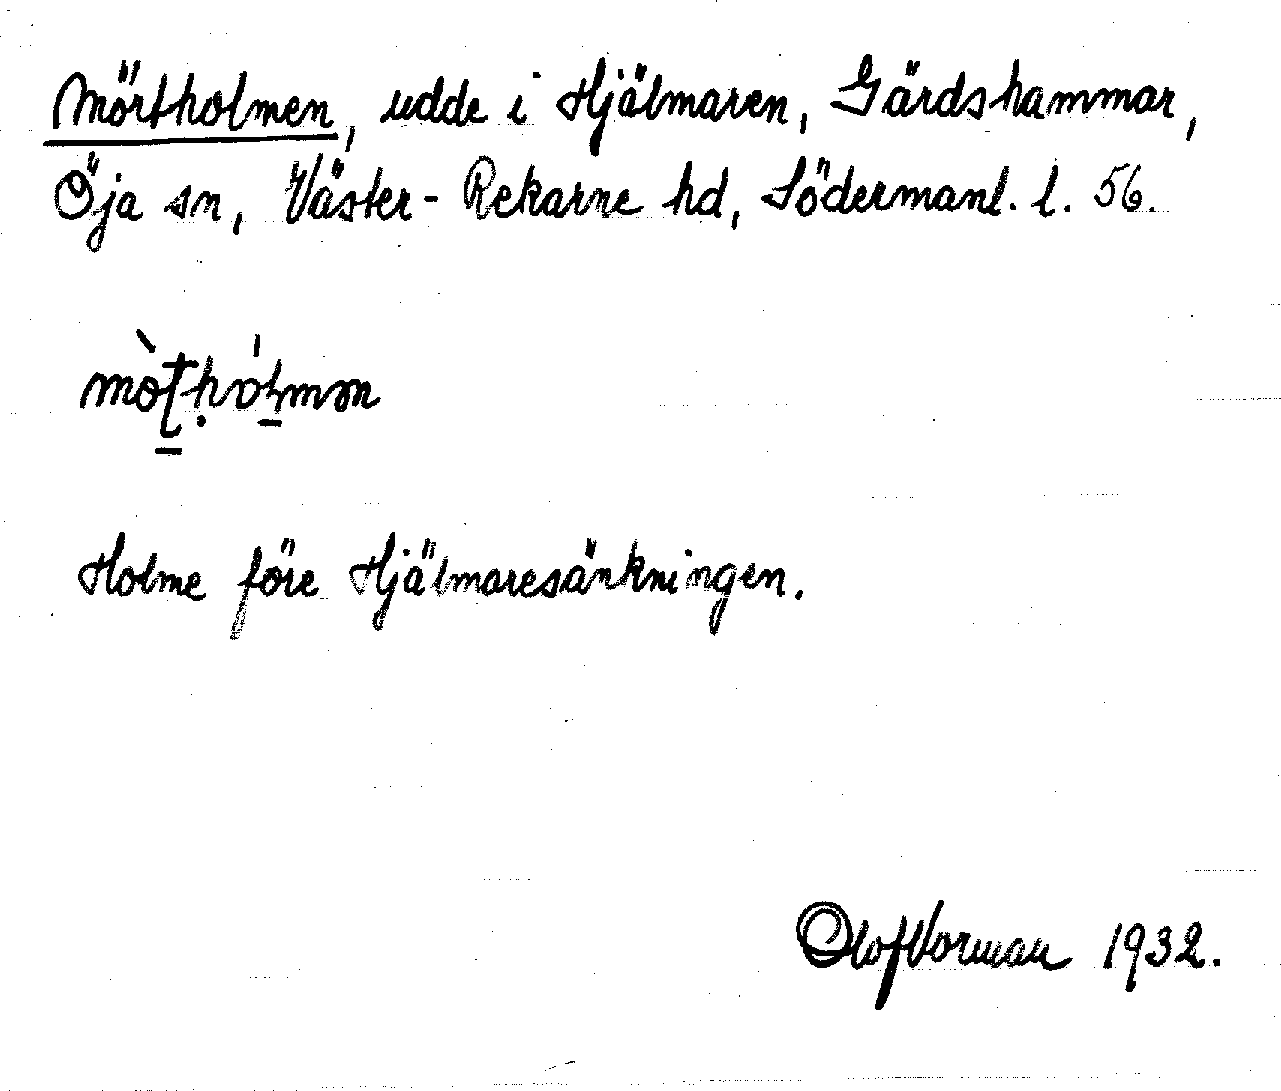 Mörtholmen, udde i Hjälmaren, Gärdshammar,
Öja sn, Väster-Rekarne hd, Södermanl. l. 56.
Holme före Hjälmaresänkningen.
Olof Vorman 1932.